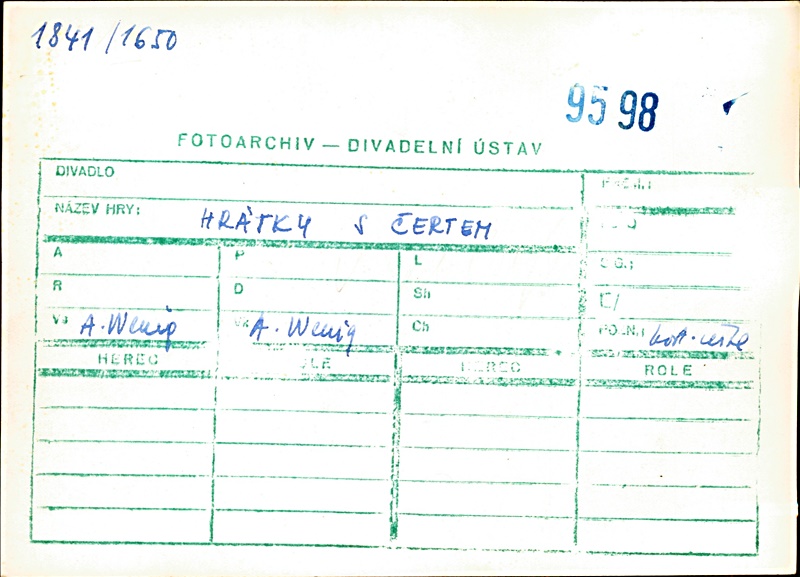 1841/1650
95 98
FOTOARCHIV — DIVADELNÍ ÚSTAV
DIVADLO
NÁZEV HRY: HRÁTKY S ČERTEM
A P L
R D Sh
A. Wenig A. Wenig Ch
HEREC HEREC ROLE